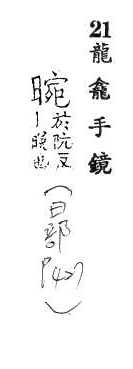 21龍龕手鏡
晼於阮反
丨
(日部P427)